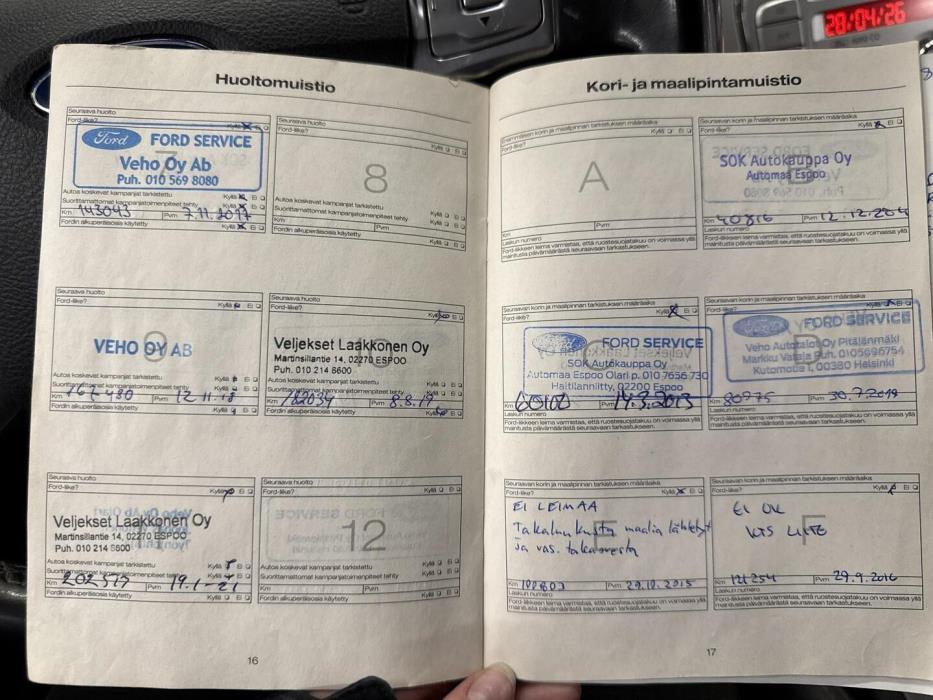 28/04/26
Huoltomuistio
Seuraava huolto
Ford-liike? Kyllä Ei
Ford FORD SERVICE
Veho Oy Ab
Puh. 010 569 8080
Autoa koskevat kampanjat tarkistettu Kyllä Ei
Suorittamattomat kampanjatoimenpiteet tehty Kyllä Ei
Km 143043 Pvm 7.11.2017
Fordin alkuperäisosia käytetty Kyllä Ei
Seuraava huolto
Ford-liike? Kyllä Ei
8
Autoa koskevat kampanjat tarkistettu Kyllä Ei
Suorittamattomat kampanjatoimenpiteet tehty Kyllä Ei
Km Pvm
Fordin alkuperäisosia käytetty Kyllä Ei
Seuraava huolto
Ford-liike? Kyllä Ei
VEHO OY AB
Autoa koskevat kampanjat tarkistettu Kyllä Ei
Suorittamattomat kampanjatoimenpiteet tehty Kyllä Ei
Km Pvm 12.11.18
Fordin alkuperäisosia käytetty Kyllä Ei
Seuraava huolto
Ford-liike? Kyllä Ei
Veljekset Laakkonen Oy
Martinsillantie 14, 02270 ESPOO
Puh. 010 214 8600
Autoa koskevat kampanjat tarkistettu Kyllä Ei
Suorittamattomat kampanjatoimenpiteet tehty Kyllä Ei
Km 182034 Pvm 8.8.19
Fordin alkuperäisosia käytetty Kyllä Ei
Seuraava huolto
Ford-liike? Kyllä Ei
Veljekset Laakkonen Oy
Martinsillantie 14, 02270 ESPOO
Puh. 010 214 8600
Autoa koskevat kampanjat tarkistettu Kyllä Ei
Suorittamattomat kampanjatoimenpiteet tehty Kyllä Ei
Km 202577 Pvm 19.1-21
Fordin alkuperäisosia käytetty Kyllä Ei
Seuraava huolto
Ford-liike? Kyllä Ei
12
Autoa koskevat kampanjat tarkistettu Kyllä Ei
Suorittamattomat kampanjatoimenpiteet tehty Kyllä Ei
Km Pvm
Fordin alkuperäisosia käytetty Kyllä Ei
16
Kori- ja maalipintamuistio
Ensimmäisen korin ja maalipinnan tarkistuksen määräaika
Ford-liike? Kyllä Ei
A
Km Pvm
Laskun numero
Ford-liikkeen leima varmistaa, että ruostesuojatakuu on voimassa yllä
mainitusta päivämäärästä seuraavaan tarkastukseen.
Seuraavan korin ja maalipinnan tarkistuksen määräaika
Ford-liike? Kyllä Ei
SOK Autokauppa Oy
Automaa Espoo
Km 40816 Pvm 12.12.
Laskun numero
Ford-liikkeen leima varmistaa, että ruostesuojatakuu on voimassa yllä
mainitusta päivämäärästä seuraavaan tarkastukseen.
Seuraavan korin ja maalipinnan tarkistuksen määräaika
Ford-liike? Kyllä
Ford FORD SERVICE
SOK Autokauppa Oy
Automaa Espoo Olari p.010 7656 730
Haltilanniitty, 02200 Espoo
Km 60102 Pvm 14.3.2013
Laskun numero
Ford-liikkeen leima varmistaa, että ruostesuojatakuu on voimassa yllä
mainitusta päivämäärästä seuraavaan tarkastukseen.
Seuraavan korin ja maalipinnan tarkistuksen määräaika
Ford-liike? Kyllä Ei
Ford FORD SERVICE
Veho Autotalot Oy Pitäjänmäki
Markku Vataja Puh. 0105696754
Kutomotie 1, 00380 Helsinki
Km 80975 Pvm
Laskun numero
Ford-liikkeen leima varmistaa, että ruostesuojatakuu on voimassa yllä
mainitusta päivämäärästä seuraavaan tarkastukseen.
Seuraavan korin ja maalipinnan tarkistuksen määräaika
Ford-liike? Kyllä Ei
EI LEIMAA
Takaluukusta maalia lähtenyt
ja vas. takaovesta
E
Km 100803 Pvm 29.10.2015
Laskun numero
Ford-liikkeen leima varmistaa, että ruostesuojatakuu on voimassa yllä
mainitusta päivämäärästä seuraavaan tarkastukseen.
Seuraavan korin ja maalipinnan tarkistuksen määräaika
Ford-liike? Kyllä Ei
EI OK
KTS LIITE
F
Km 121254 Pvm 29.9.2016
Laskun numero
Ford-liikkeen leima varmistaa, että ruostesuojatakuu on voimassa yllä
mainitusta päivämäärästä seuraavaan tarkastukseen.
17